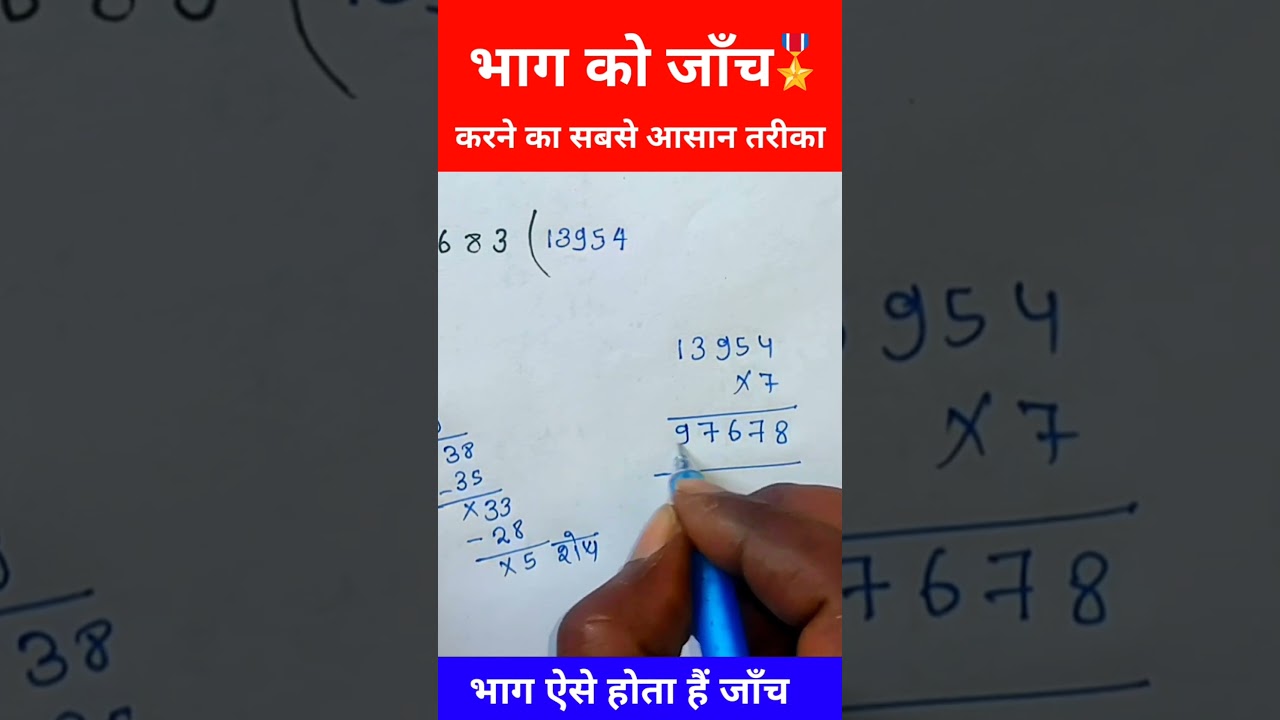 भाग को जाँच
करने का सबसे आसान तरीका
683 ( 13954
13954
×7
97678
38
-35
×33
-28
×5 शेष
भाग ऐसे होता हैं जाँच